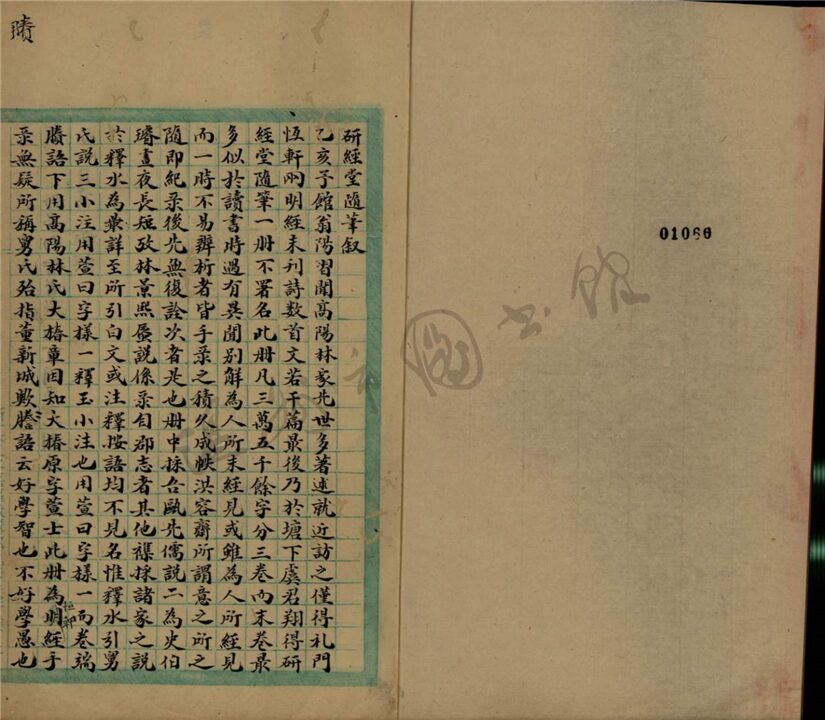 賾
研經堂隨筆叙
乙亥予館翁陽習聞高陽林家先世多著述就近訪之僅得礼門
恆軒兩明經未刊詩数首文若干篇最後乃於塘下虞君翔得研
經堂隨筆一册不署名此册凡三萬五千餘字分三卷而末卷最
多似於讀書時遇有異聞别解為人所未經見或雖為人所經見
而一時不易辨析者皆手录之積久成帙洪容齋所謂意之所之
隨即紀录後先無復詮次者是也册中採台甌先儒説二為史伯
璿晝夜長短攷林景熙蜃説係录自郡志者其他襍採諸家之説
於釋水為最詳至所引白文或注釋按語均不見名惟釋水引舅
氏説三小注用萱曰字樣一釋玉小注也用萱曰字樣一而卷端
賸語下用高陽林氏大椿章因知大椿原字萱士此册為明經手
恒軒
录無疑所稱舅氏殆指董新城歟賸語云好學智也不好學愚也
01060
市圖书館